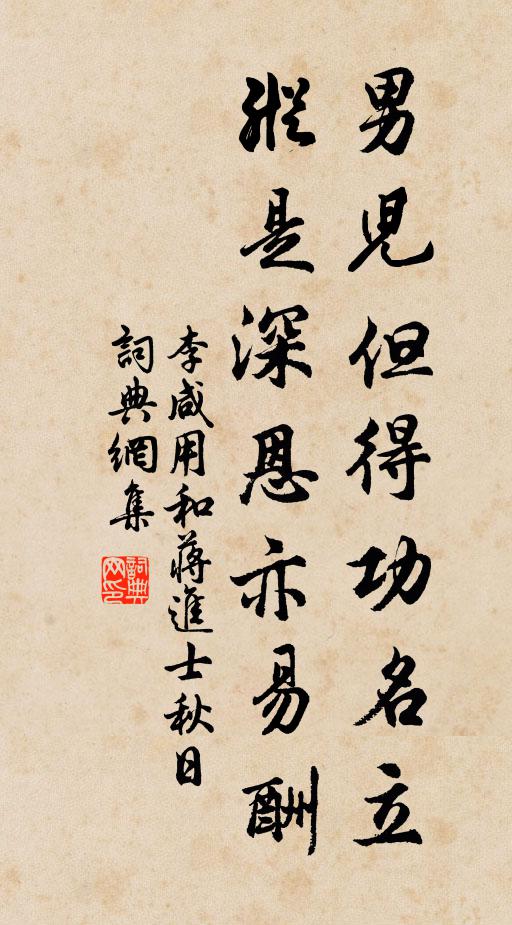 男兒但得功名立
縱是深恩亦易酬
李咸用和蔣進士秋日
詞典網集
詞典网印